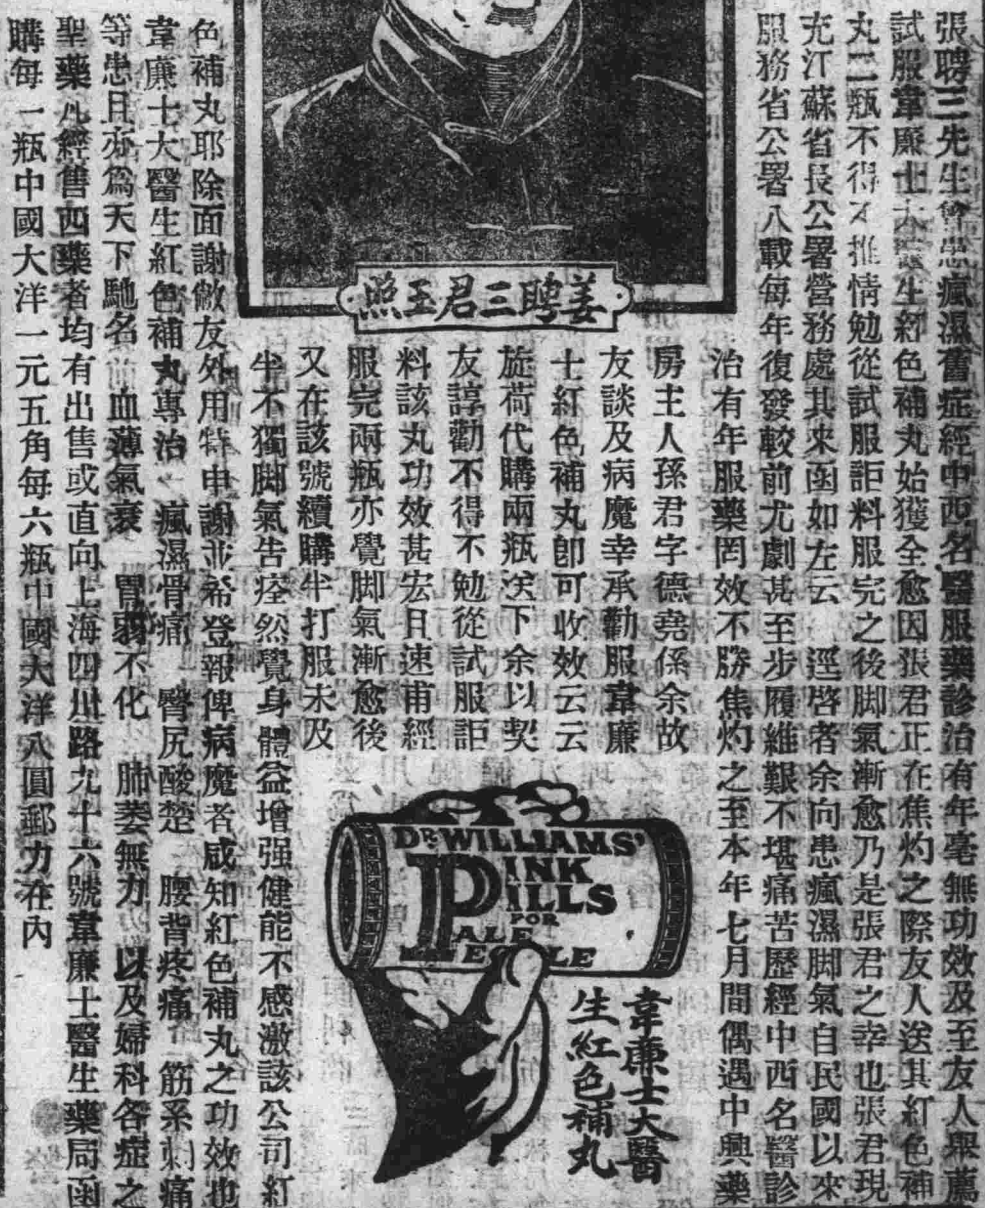 張聘三先生曾患瘋濕舊症經中西名醫服藥診治有年毫無功效及至友人舉薦
試服韋廉士大醫生紅色補丸始獲全愈因張君正在焦灼之際友人送其紅色補
丸二瓶不得不推情勉從試服詎料服完之後脚氣漸愈乃是張君之幸也張君現
充江蘇省長公署營務處其來函如左云 逕啓者余向患瘋濕脚氣自民國以來
服務省公署八載每年復發較前尤劇甚至步履維艱不堪痛苦歷經中西名醫診
治有年服藥罔效不勝焦灼之至本年七月間偶遇中興藥
房主人孫君字德堯係余故
友談及病魔幸承勸服韋廉
士紅色補丸卽可收效云云
旋荷代購兩瓶送下余以契
友諄勸不得不勉從試服詎
料該丸功效甚宏且速甫經
服完兩瓶亦覺脚氣漸愈後
又在該號續購半打服未及
半不獨脚氣告痊然覺身體益增强健能不感激該公司紅
色補丸耶除面謝敝友外用特申謝並希登報俾病魔者咸知紅色補丸之功效也
韋廉士大醫生紅色補丸專治 瘋濕骨痛 臀尻酸楚 腰背疼痛 筋系刺痛
等患且亦爲天下馳名 血薄氣衰 胃弱不化 肺萎無力 以及婦科各症之
聖藥凡經售西藥者均有出售或直向上海四川路九十六號韋廉士醫生藥局函
購每一瓶中國大洋一元五角每六瓶中國大洋八圓郵力在內
姜聘三君玉照
DR. WILLIAMS'
PINK
PILLS
FOR
PALE
PEOPLE
韋廉士大醫
生紅色補丸